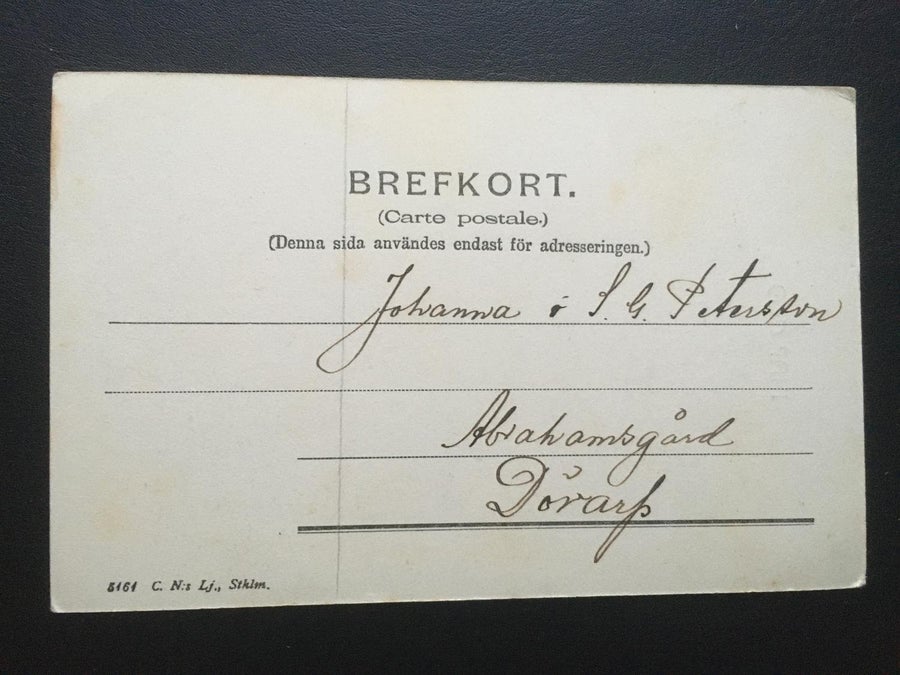 BREFKORT.
(Carte postale.)
(Denna sida användes endast för adresseringen.)
Johanna i S. G. Petersson
Abrahamsgård
Dörarp
5161 C. N:s Lj., Sthlm.